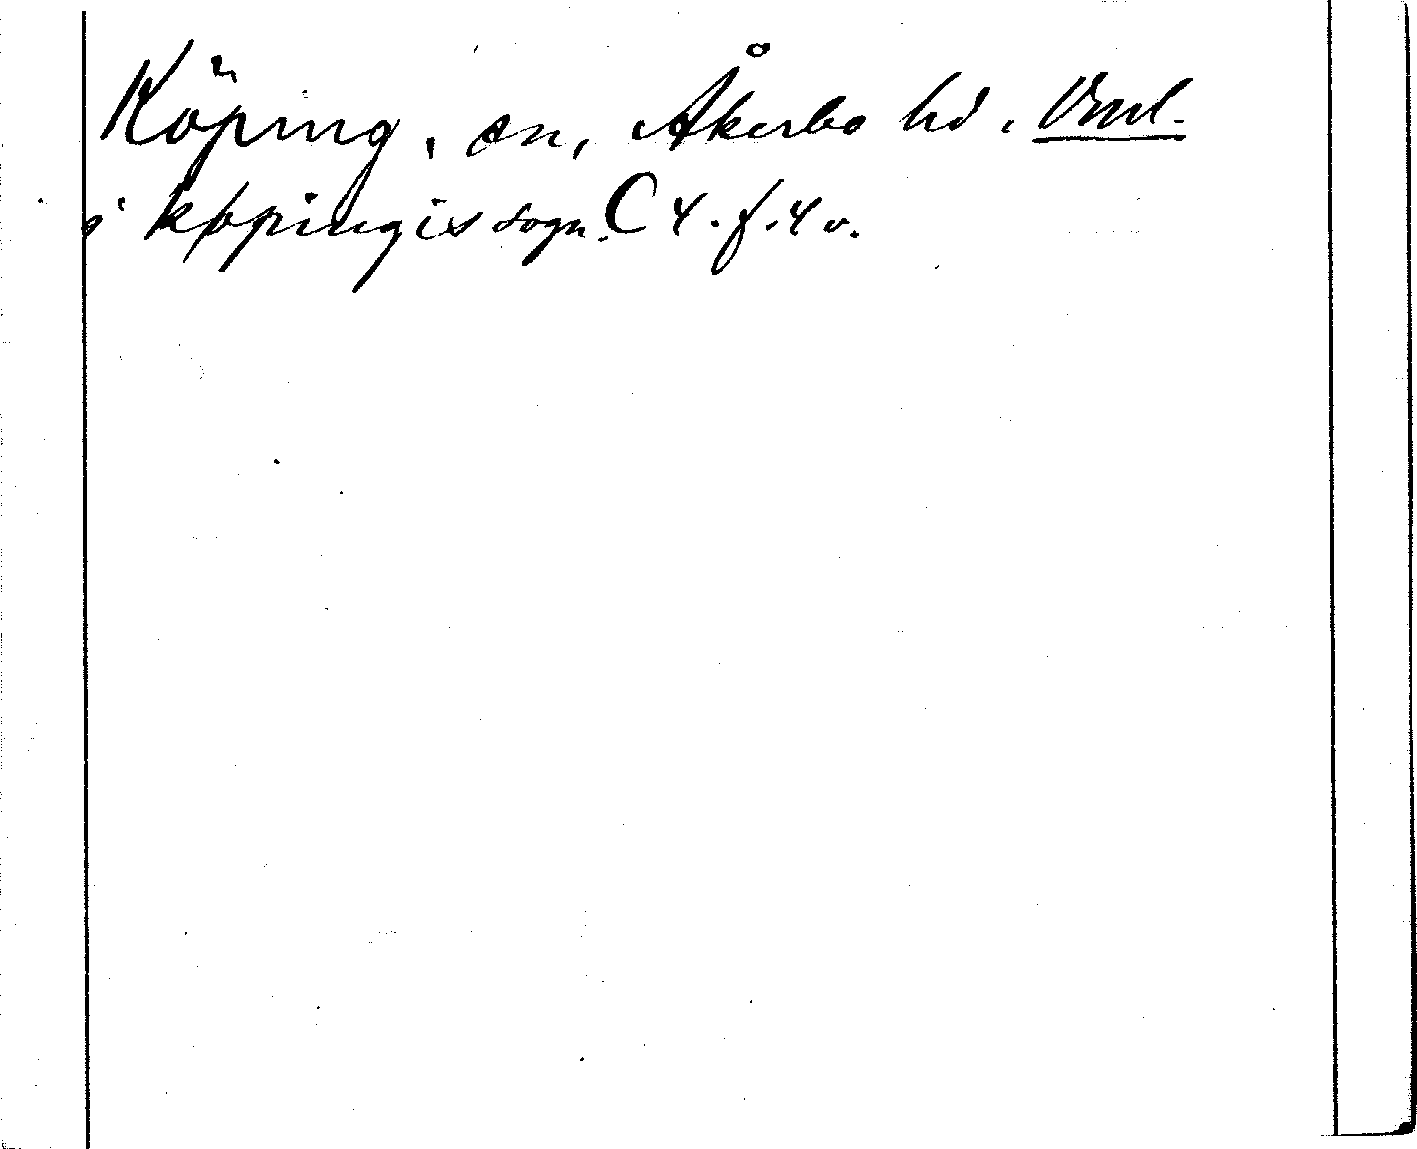 Köping, sn, Åkerbo hd, Vml.
i køpingis sogn. C 4. f. 4 v.